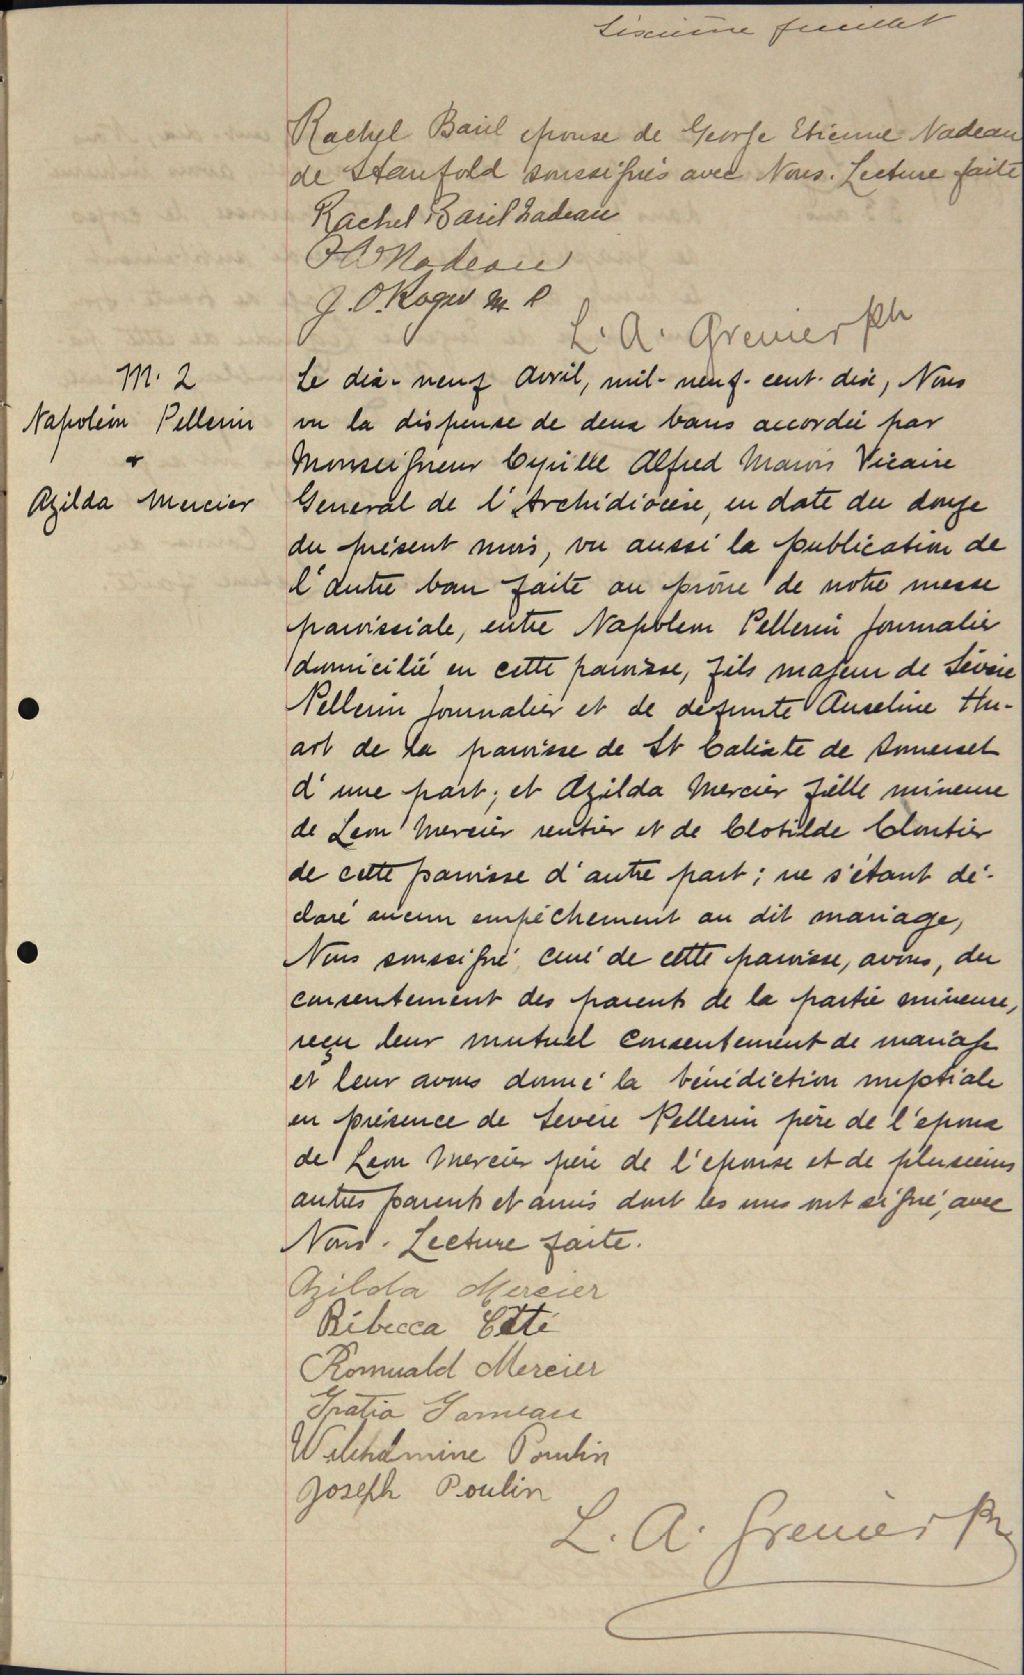 Sixième feuillet
Rachel Baril epouse de George Etienne Nadeau
de Stanfold soussignés avec Nous. Lecture faite
Rachel Baril Nadeau
Nadeau
J. O. Roger M. P
L. A. Grenier Ptr
M. 2
Napoléon Pellerin
+
Azilda Mercier
Le dix-neuf Avril, mil-neuf-cent-dix, Nous
vu la dispense de deux bans accordée par
Monseigneur Cyrille Alfred Marois Vicaire
General de l'Archidiocèse, en date du douze
du présent mois, vu aussi la publication de
l'autre ban faite au prône de notre messe
paroissiale, entre Napoleon Pellerin journalier
domicilié en cette paroisse, fils majeur de Sévère
Pellerin journalier et de defunte Anseline Hu-
ard de la paroisse de St Calixte de Somerset
d'une part; et Azilda Mercier fille mineure
de Leon Mercier rentier et de Clotilde Cloutier
de cette paroisse d'autre part; ne s'étant dé-
claré aucun empêchement au dit mariage,
Nous soussigné curé de cette paroisse, avons, du
consentement des parents de la partie mineure,
reçu leur mutuel consentement de mariage
et leur avons donné la bénédiction nuptiale
en présence de Severe Pellerin père de l'epoux
de Leon Mercier père de l'epouse et de plusieurs
autres parents et amis dont les uns ont signé, avec
Nous. Lecture faite.
Azilda Mercier
Rébecca Côté
Romuald Mercier
Gratia Garneau
Wilhelmine Poulin
Joseph Poulin
L. A. Grenier Ptr